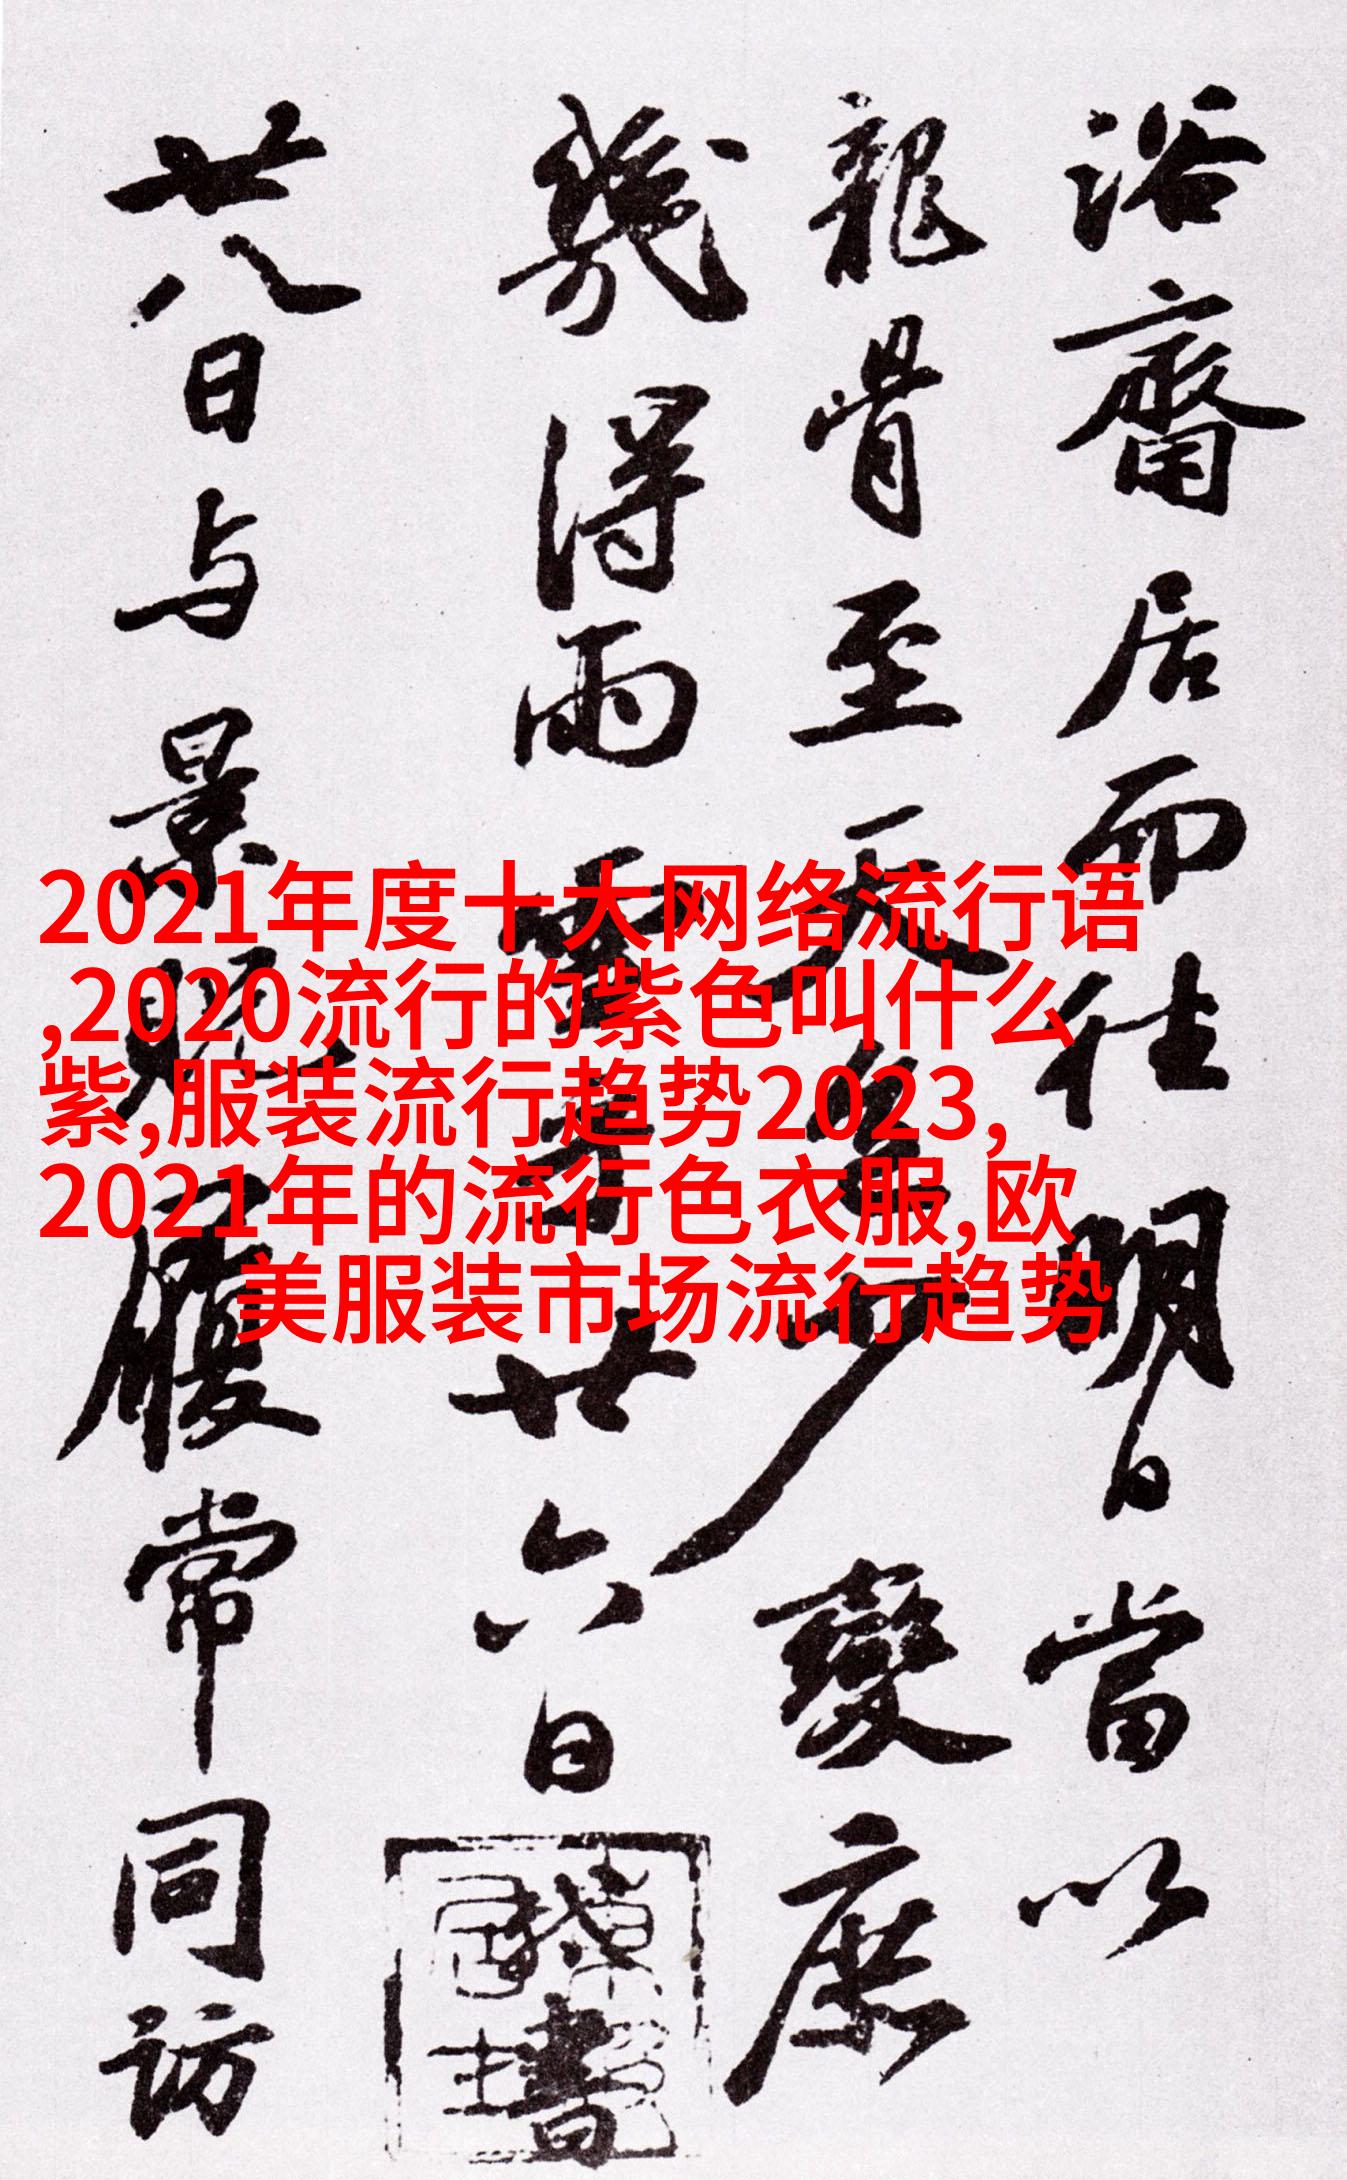 浴齋居而往明日當以
龍骨至天氣少變庶
幾得雨雪耳廿六日
書
廿八日与景賑履常同訪
2021年度十大网络流行语
,2020流行的紫色叫什么
紫,服装流行趋势2023,
2021年的流行色衣服,欧
美服装市场流行趋势